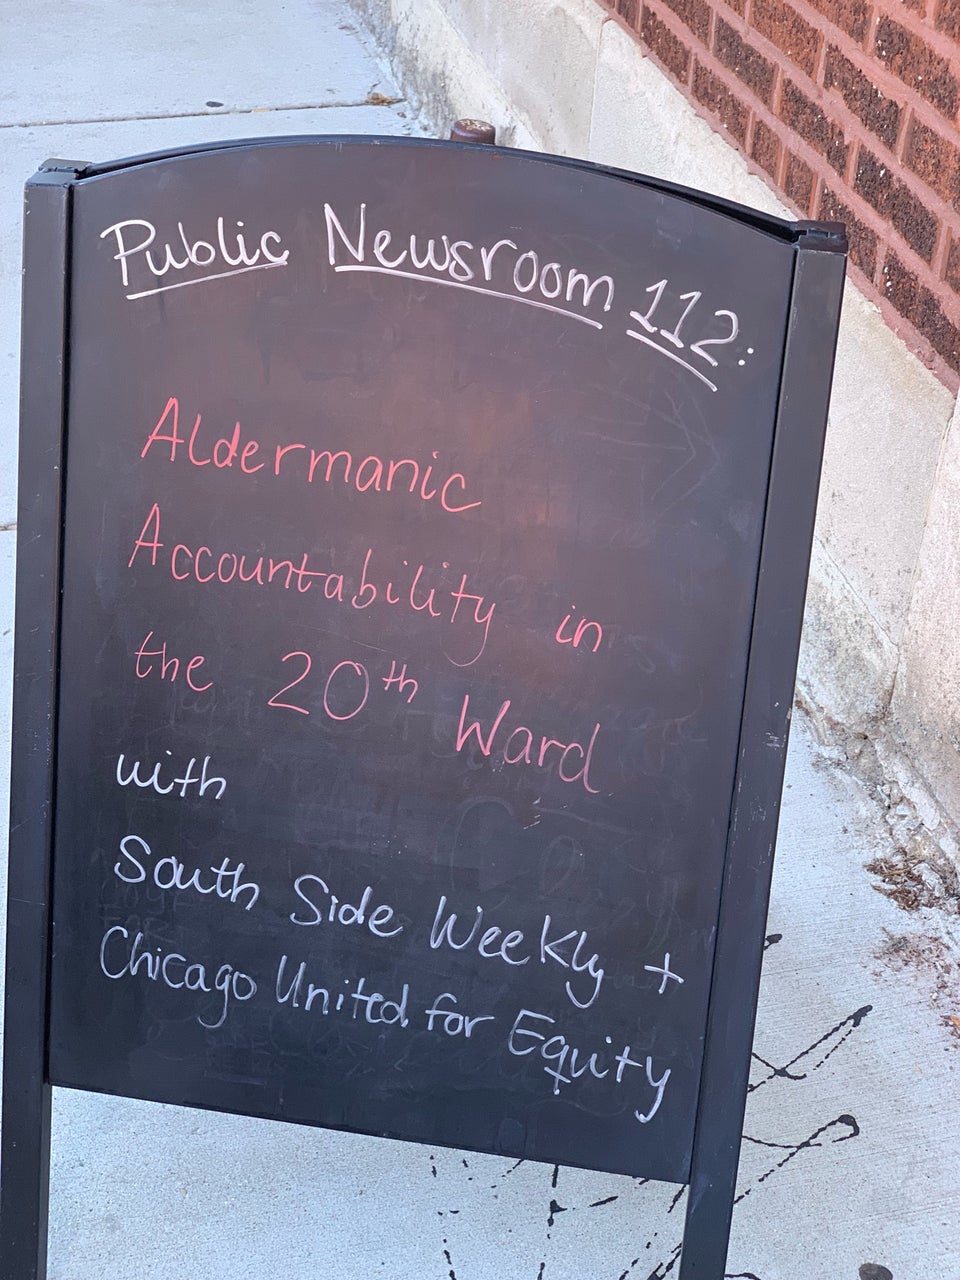 Public Newsroom 112:
Aldermanic
Accountability in
the 20th Ward
with
South Side Weekly +
Chicago United for Equity